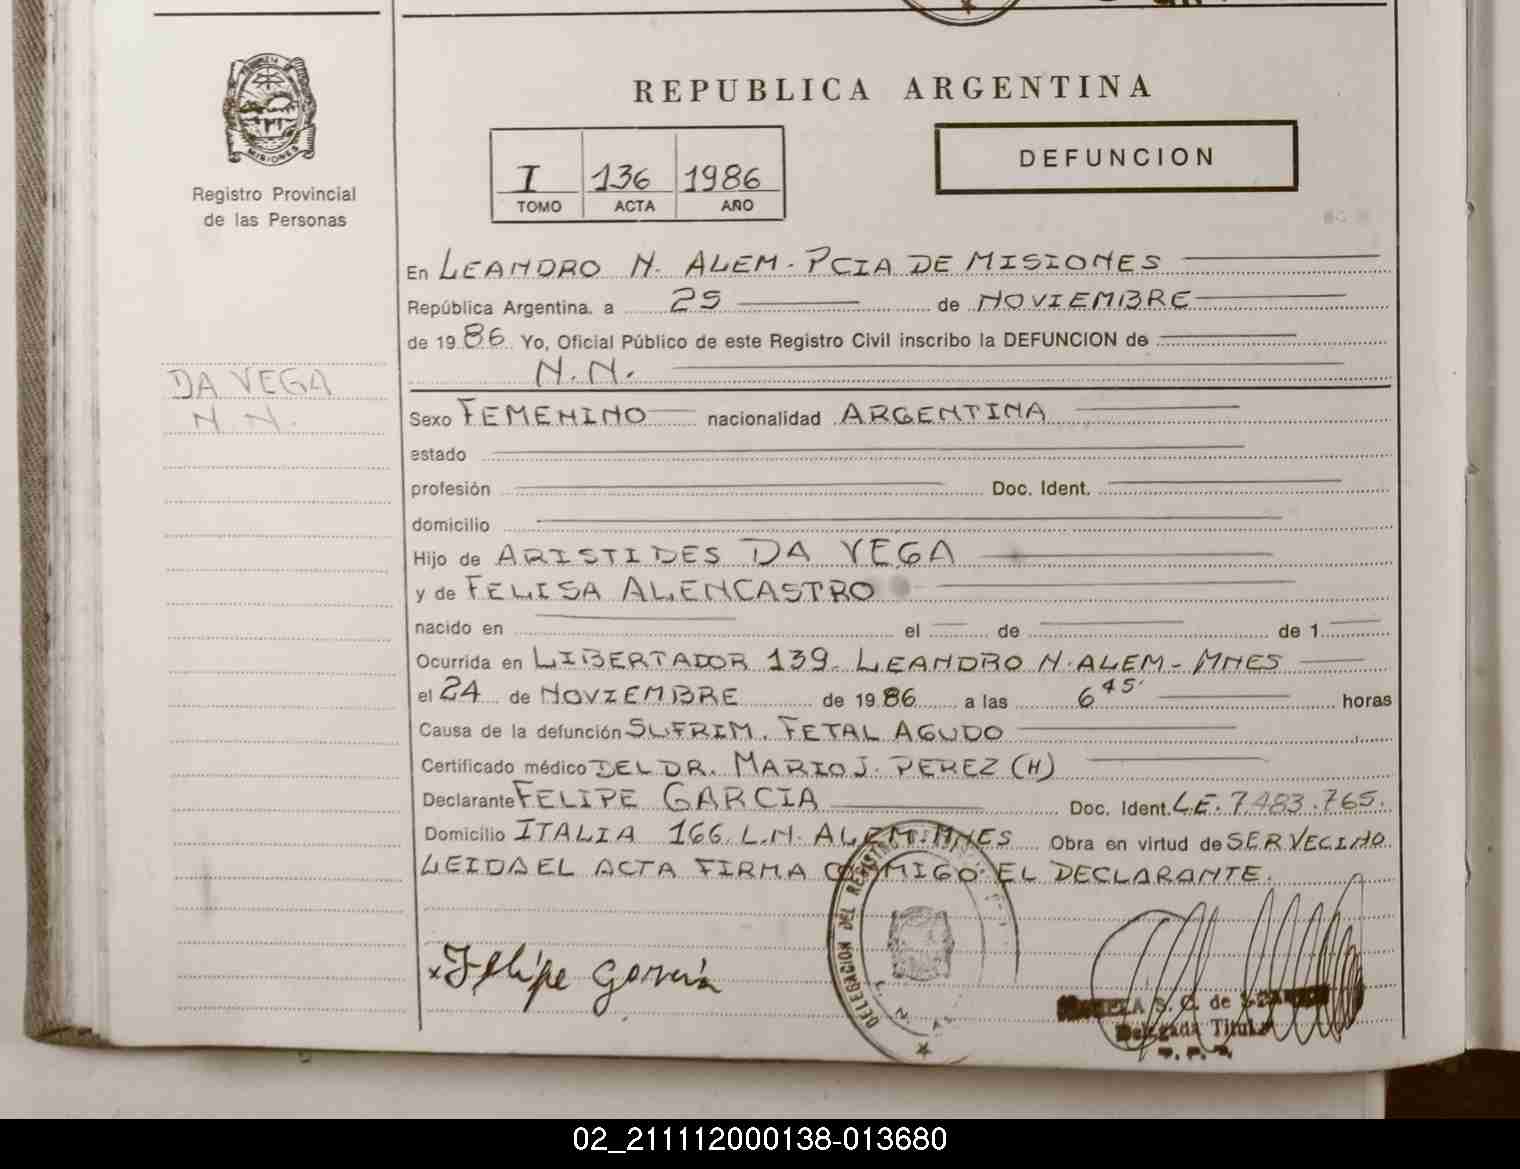 MISIONES
Registro Provincial
de las Personas
DA VEGA
N. N.
REPUBLICA ARGENTINA
I 136 1986
TOMO ACTA AÑO
DEFUNCION
En LEANDRO N. ALEM - PCIA DE MISIONES
República Argentina, a 25 de NOVIEMBRE
de 1986 Yo, Oficial Público de este Registro Civil inscribo la DEFUNCION de
N.N.
Sexo FEMENINO nacionalidad ARGENTINA
estado
profesión Doc. Ident.
domicilio
Hijo de ARISTIDES DA VEGA
y de FELISA ALENCASTRO
nacido en el de de 1
Ocurrida en LIBERTADOR 139 - LEANDRO N. ALEM - MNES
el 24 de NOVIEMBRE de 1986 a las 6 45' horas
Causa de la defunción SUFRIM. FETAL AGUDO
Certificado médico DEL DR. MARIO J. PEREZ (H)
Declarante FELIPE GARCIA Doc. Ident. LE. 7.483.765.
Domicilio ITALIA 166 L.N. ALEM. MNES Obra en virtud de SER VECINO
LEIDA EL ACTA FIRMA CONMIGO EL DECLARANTE.
x Felipe Garcia
DELEGACION DEL
S. C. de
Delegada Titular
02_211112000138-013680